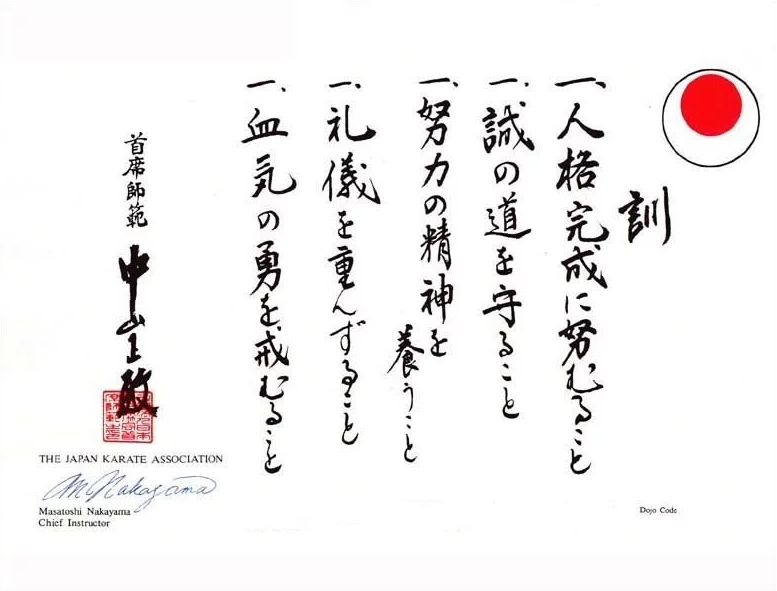 訓
一、人格完成に努むること
一、誠の道を守ること
一、努力の精神を養うこと
一、礼儀を重んずること
一、血気の勇を戒むること
首席師範
中山正敏
THE JAPAN KARATE ASSOCIATION
M Nakayama
Masatoshi Nakayama
Chief Instructor
Dojo Code